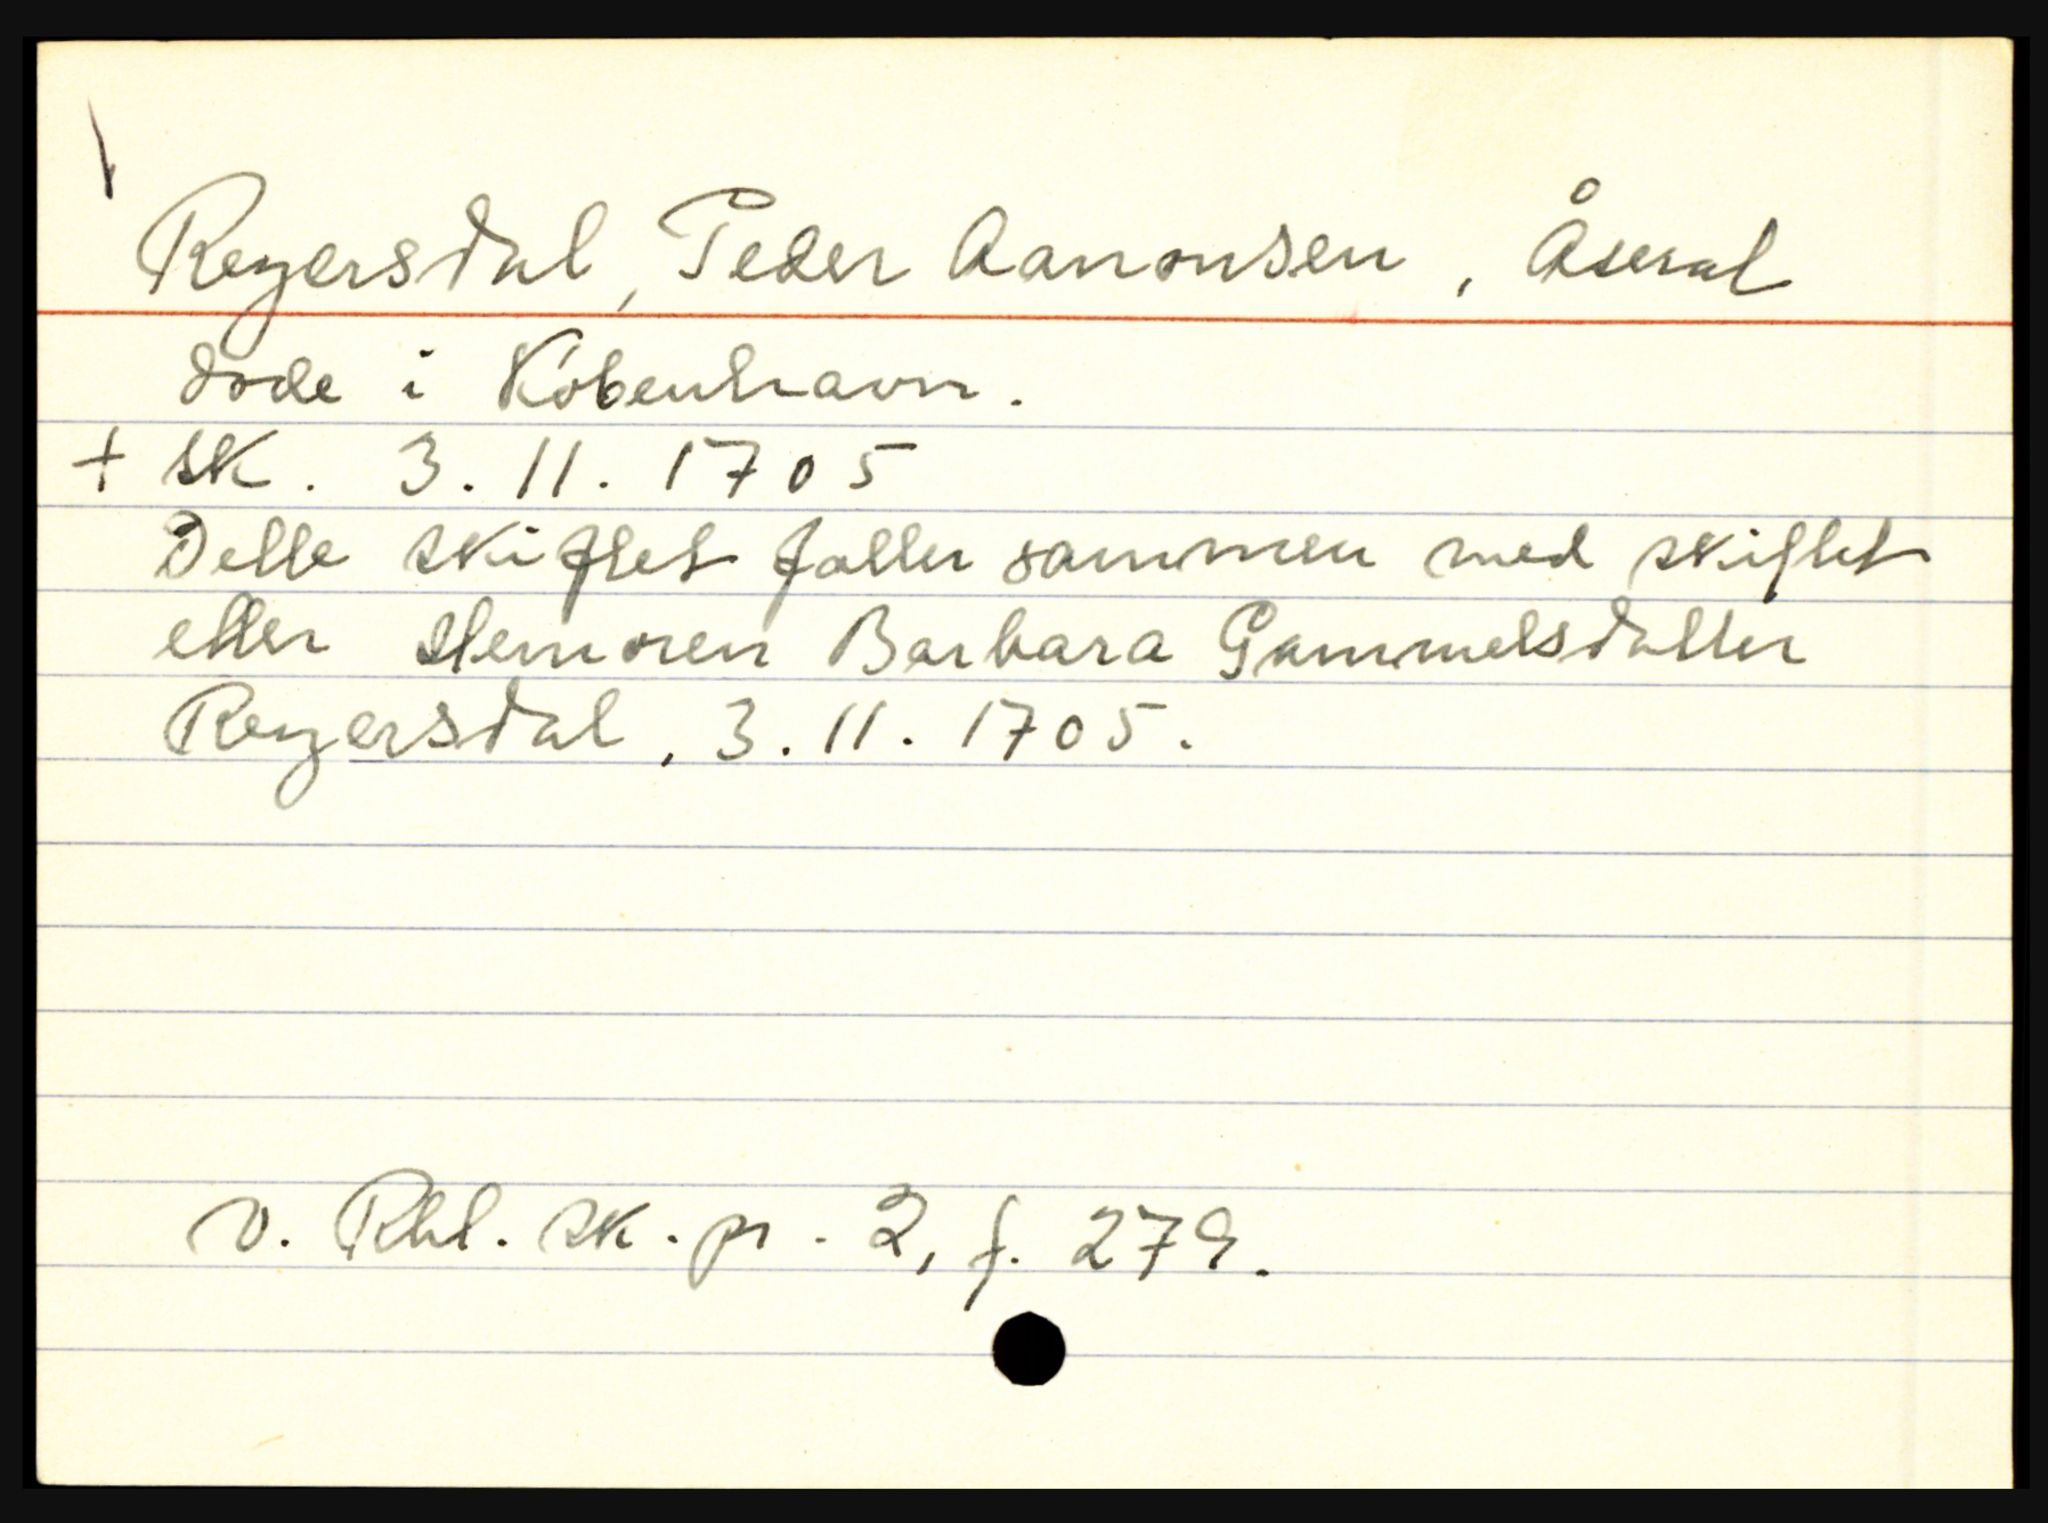 Reyersdal, Peder Aanonsen, Åseral
døde i København.
+ sk. 3.11.1705
Dette skiftet faller sammen med skiftet
etter stemoren Barbara Gammelsdatter
Reyersdal, 3.11.1705.
v. Rbl. sk. pr. 2, f. 279.